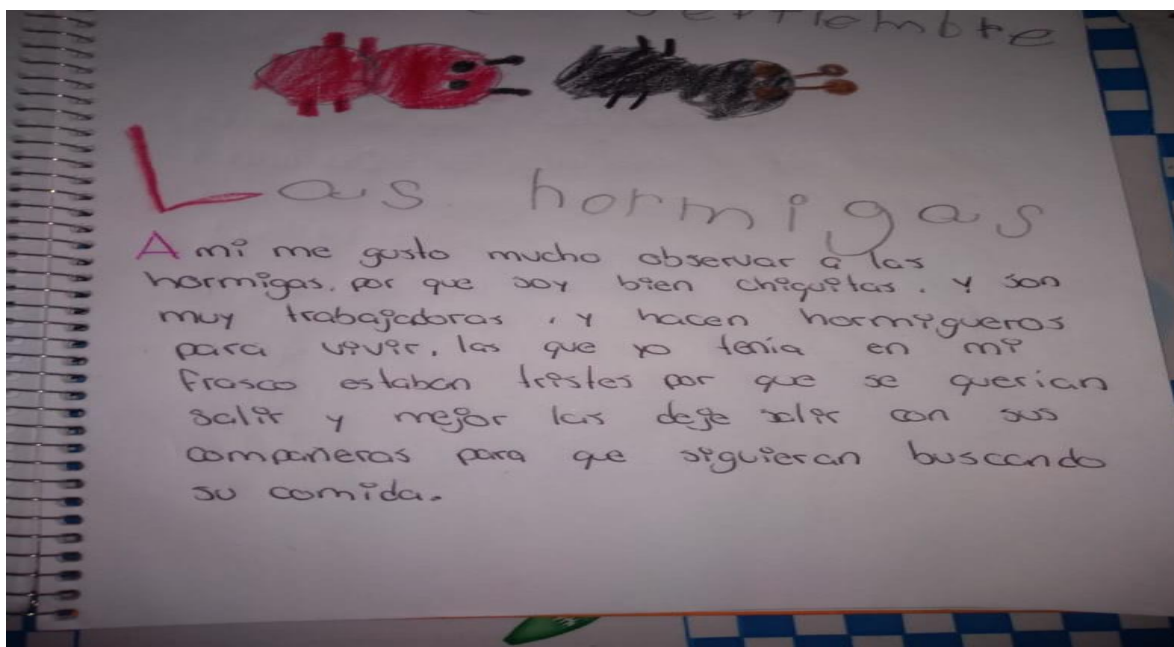 Las hormigas
A mi me gusto mucho observar a las
hormigas. por que soy bien chiquitas. y son
muy trabajadoras. y hacen hormigueros
para vivir. las que yo tenía en mi
frasco estaban tristes por que se querian
salir y mejor las deje salir con sus
compañeras para que siguieran buscando
su comida.